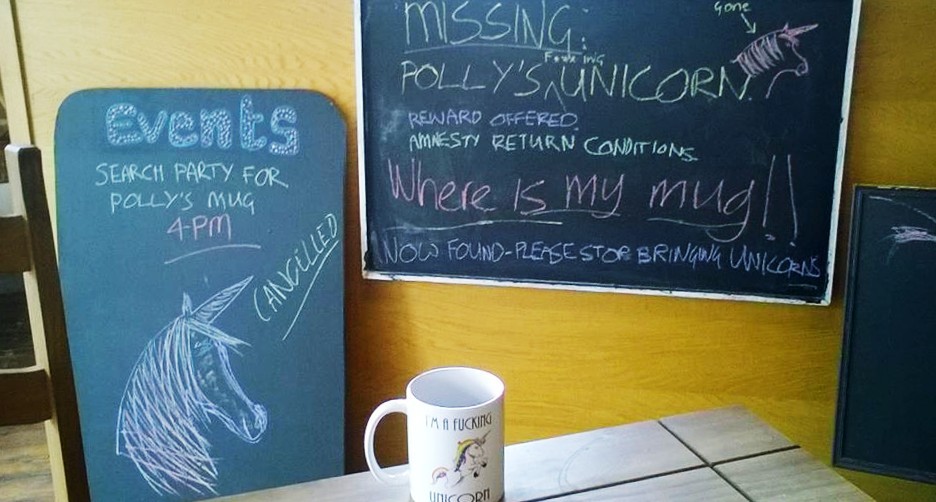 Events
SEARCH PARTY FOR
POLLY'S MUG
4-PM
CANCILLED
MISSING:
Gone
Fucking
POLLY'S UNICORN!
REWARD OFFERED
AMNESTY RETURN CONDITIONS
Where is my mug!!
NOW FOUND-PLEASE STOP BRINGING UNICORNS
I'M A FUCKING
UNICORN